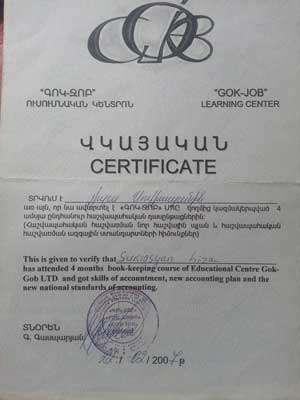 "ԳՈԿ-ՋՈԲ"
ՈՒՍՈՒՄՆԱԿԱՆ ԿԵՆՏՐՈՆ
"GOK-JOB"
LEARNING CENTER
ՎԿԱՅԱԿԱՆ
CERTIFICATE
ՏՐՎՈՒՄ Է
առ այն, որ նա ավարտել է «ԳՈԿ-ՋՈԲ» ՍՊԸ կողմից կազմակերպված 4
ամսյա ընդհանուր հաշվապահական դասընթացները:
(Հաշվապահական հաշվառման նոր հաշվային պլան և հաշվապահական
հաշվառման ազգային ստանդարտների հիմունքներ)
This is given to verify that Sukiasyan Liza
has attended 4 months book-keeping course of Educational Centre Gok-
Gob LTD and got skills of accountment, new accounting plan and the
new national standards of accounting.
ՏՆՕՐԵՆ
Գ. Գասպարյան
02/2007թ